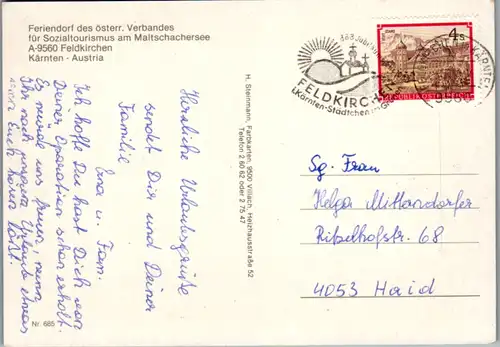 Feriendorf des österr. Verbandes
für Sozialtourismus am Maltschachersee
A-9560 Feldkirchen
Kärnten - Austria
Herzliche Urlaubsgrüße
sendet Dir und Deiner
Familie
u. Fam.
Ich hoffe Du hast Dich von
Deiner Operation schon erholt.
Es würde uns freuen, wenn
Ihr nach unserem Urlaub etwas
von Euch hören läßt.
Nr. 685
H. Steinmann, Farbkarten, 9500 Villach, Heizhausstraße 52
Telefon 2 60 62 oder 2 75 47
FELDKIRCHEN
i.Kärnten-Städtchen
4 S
REPUBLIK ÖSTERREICH
Sg. Frau
Helga Mittendorfer
Ritzlhofstr. 68
4053 Haid